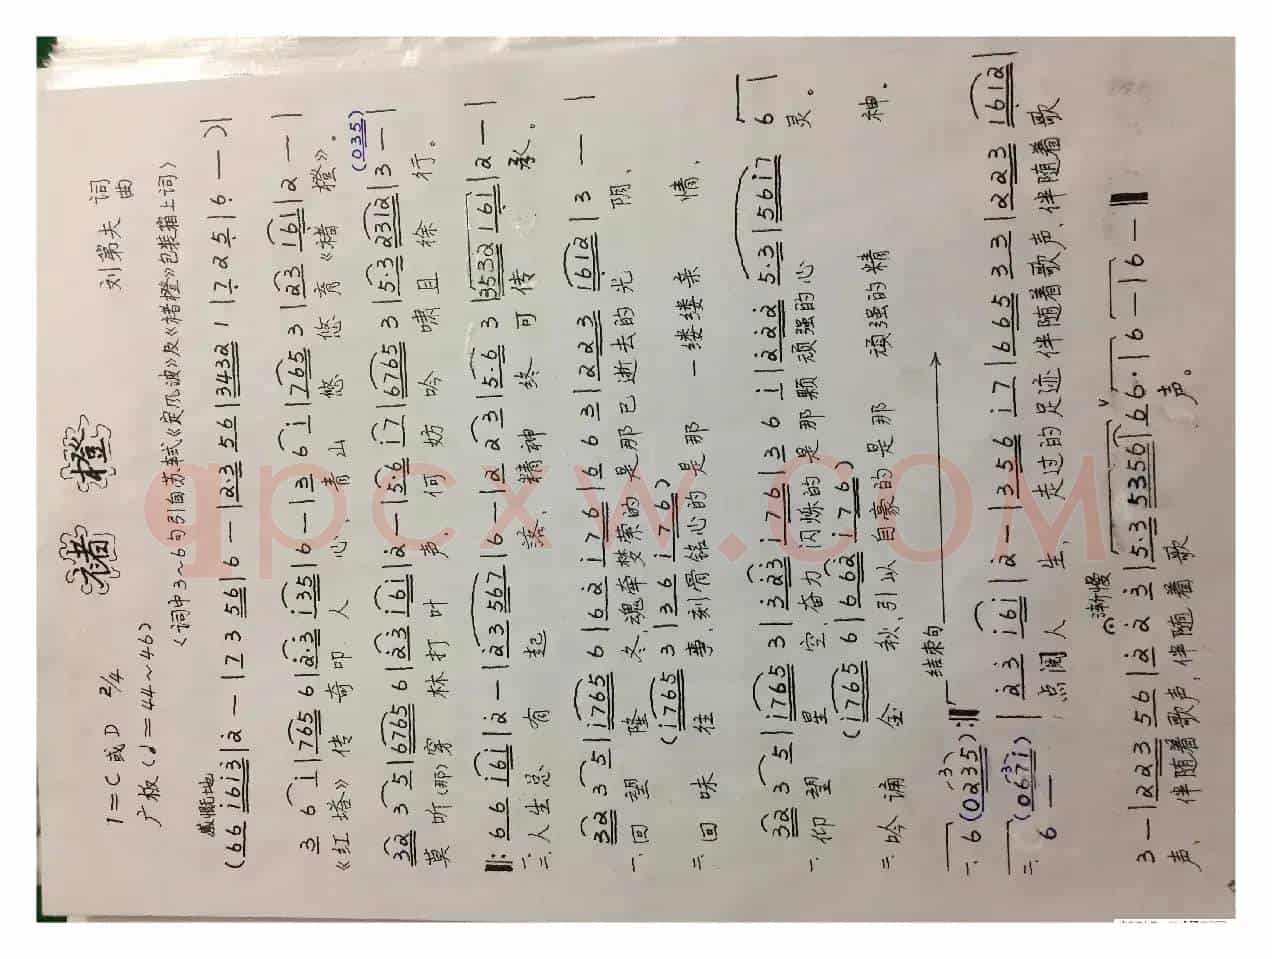 褚 橙
1=C 或 D 2/4
广板 (♩=44~46)
刘第夫 词曲
(词中3~6句引自苏轼《定风波》及《褚橙》包装箱上词)
感慨地
(66 i6i3|2 — |7 3 56|6 — |2·3 56|3432 1|7 2 5|6 — )|
3 6 i|765 6|2·3 i35|6 — |3 6 i|765 3|23 161|2 — |
《红塔》传奇叩人心, 青山悠悠育《褚橙》.
(035)
32 3 5|6765 6|23 i6i|2 — |5·6 i7|6765 3|5·3 2312|3 — |
莫听(那)穿林打叶声 何妨吟啸且徐行.
‖: 6 6 i6i|2 — |23 567|6 — |2 23|5·6 3|3532 161|2 — |
一.二.人生总有起落, 精神终可传承.
32 3 5|i765 6|62 i76|6 63|223 1612|3 — |
一.回望隆冬,魂牵梦萦的是那已逝去的光阴,
(i765 3|36 i76)
二.回味往事,刻骨铭心的是那一缕缕亲情,
32 3 5|i765 3|323 i76|36 i|222 5·3|56i7 6|
一.仰望星空,奋力闪烁的是那颗顽强的心灵.
(i765 6|662 i76)
二.吟诵金秋,引以自豪的是那顽强的精神.
结束句
一. 6 (0235):‖
二. 6 — (067i)|23 i6i|2 — |356 i7|665 33|223 1612|
点阅人生, 走过的足迹伴随着歌声、伴随着歌
渐慢
3 — |22356|2 23|5·3 5356|66·|6 — |6 — ‖
声、伴随着歌声,伴随着歌声。
qpcxw.COM